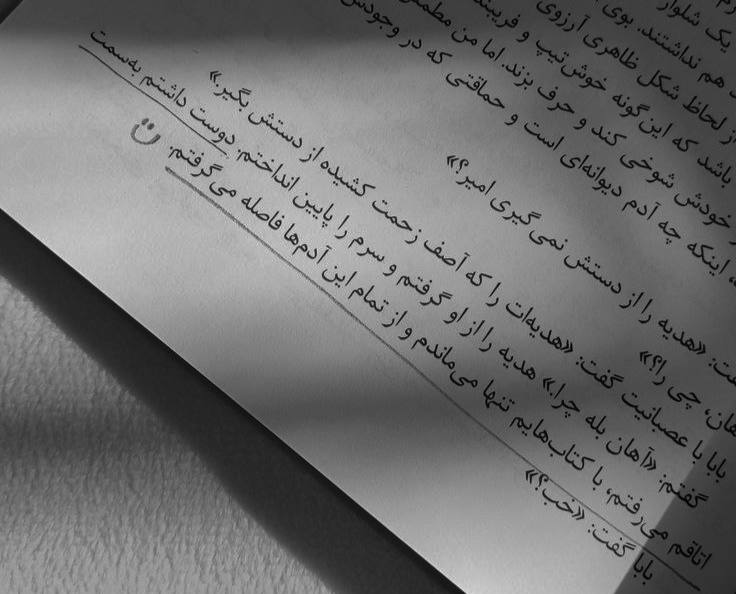 یک شلوار
هم نداشتند. بوی
از لحاظ شکل ظاهری آرزوی
باشد که این‌گونه خوش‌تیپ و
خودش شوخی کند و حرف بزند. اما من
اینکه چه آدم دیوانه‌ای است و حماقتی که در وجودش
گفت: «هدیه را از دستش نمی‌گیری امیر؟»
چی را؟»
بابا با عصبانیت گفت: «هدیه‌ات را که آصف زحمت کشیده از دستش بگیر.»
گفتم: «آهان بله چرا.» هدیه را از او گرفتم و سرم را پایین انداختم. دوست داشتم به‌سمت
اتاقم می‌رفتم، با کتاب‌هایم تنها می‌ماندم و از تمام این آدم‌ها فاصله می‌گرفتم.
بابا گفت: «خب؟»